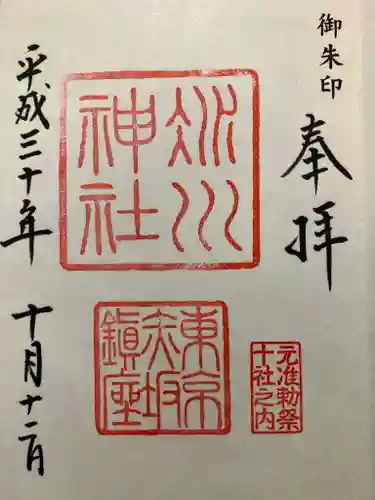 御朱印
奉拝
氷川
神社
東京
赤坂
鎮座
元准勅祭
十社之内
平成三十年 十月十二日